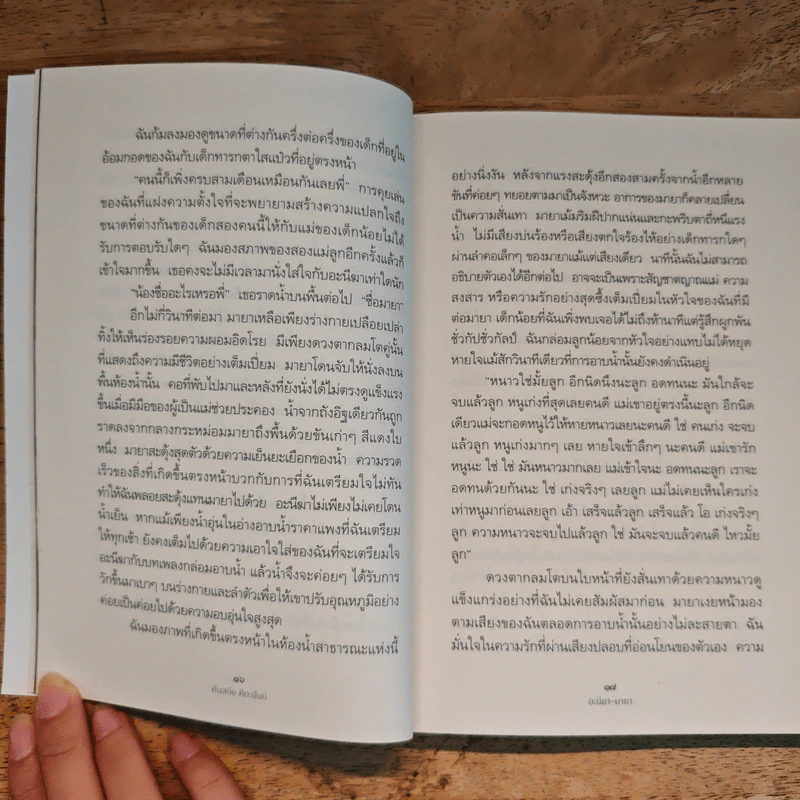 ฉันก้มลงมองดูขนาดที่ต่างกันครึ่งต่อครึ่งของเด็กที่อยู่ใน
อ้อมกอดของฉันกับเด็กทารกตาใสแป๋วที่อยู่ตรงหน้า
"คนนี้ก็เพิ่งครบสามเดือนเหมือนกันเลยพี่" การคุยเล่น
ของฉันที่แฝงความตั้งใจที่จะพยายามสร้างความแปลกใจถึง
ขนาดที่ต่างกันของเด็กสองคนนี้ให้กับแม่ของเด็กน้อยไม่ได้
รับการตอบรับใดๆ ฉันมองสภาพของสองแม่ลูกอีกครั้งแล้วก็
เข้าใจมากขึ้น เธอคงจะไม่มีเวลามานั่งใส่ใจกับอะนีฆาเท่าใดนัก
"น้องชื่ออะไรเหรอพี่" เธอราดน้ำบนพื้นต่อไป "ชื่อมายา"
อีกไม่กี่วินาทีต่อมา มายาเหลือเพียงร่างกายเปลือยเปล่า
ทิ้งให้เห็นร่องรอยความผอมอิดโรย มีเพียงดวงตากลมโตคู่นั้น
ที่แสดงถึงความมีชีวิตอย่างเต็มเปี่ยม มายาโดนจับให้นั่งลงบน
พื้นห้องน้ำนั้น คอที่พับไปมาและหลังที่ยังนั่งได้ไม่ตรงดูแข็งแรง
ขึ้นเมื่อมีมือของผู้เป็นแม่ช่วยประคอง น้ำจากถังอิฐเดียวกันถูก
ราดลงจากกลางกระหม่อมมายาถึงพื้นด้วยขันเก่าๆ สีแดงใบ
หนึ่ง มายาสะดุ้งสุดตัวด้วยความเย็นยะเยือกของน้ำ ความรวด
เร็วของสิ่งที่เกิดขึ้นตรงหน้าบวกกับการที่ฉันเตรียมใจไม่ทัน
ทำให้ฉันพลอยสะดุ้งแทนมายาไปด้วย อะนีฆาไม่เพียงไม่เคยโดน
น้ำเย็น หากแม้เพียงน้ำอุ่นในอ่างอาบน้ำราคาแพงที่ฉันเตรียม
ให้ทุกเช้า ยังคงเต็มไปด้วยความเอาใจใส่ของฉันที่จะเตรียมใจ
อะนีฆากับบทเพลงกล่อมอาบน้ำ แล้วน้ำจึงจะค่อยๆ ได้รับการ
วักขึ้นมาเบาๆ บนร่างกายและลำตัวเพื่อให้เขาปรับอุณหภูมิอย่าง
ค่อยเป็นค่อยไปด้วยความอบอุ่นใจสูงสุด
ฉันมองภาพที่เกิดขึ้นตรงหน้าในห้องน้ำสาธารณะแห่งนี้
๑๖
อย่างนิ่งงัน หลังจากแรงสะดุ้งอีกสองสามครั้งจากน้ำอีกหลาย
ขันที่ค่อยๆ ทยอยตามมาเป็นจังหวะ อาการของมายาก็คลายเปลี่ยน
เป็นความสั่นเทา มายาเม้มริมฝีปากแน่นและกะพริบตาถี่หนีแรง
น้ำ ไม่มีเสียงบ่นร้องหรือเสียงตกใจร้องไห้อย่างเด็กทารกใดๆ
ผ่านลำคอเล็กๆ ของมายาแม้แต่เสียงเดียว นาทีนั้นฉันไม่สามารถ
อธิบายตัวเองได้อีกต่อไป อาจจะเป็นเพราะสัญชาตญาณแม่ ความ
สงสาร หรือความรักอย่างสุดซึ้งเต็มเปี่ยมในหัวใจของฉันที่มี
ต่อมายา เด็กน้อยที่ฉันเพิ่งพบเจอได้ไม่ถึงห้านาทีแต่รู้สึกผูกพัน
ชั่วกัปชั่วกัลป์ ฉันกล่อมลูกน้อยจากหัวใจอย่างแทบไม่ได้หยุด
หายใจแม้สักวินาทีเดียวที่การอาบน้ำนั้นยังคงดำเนินอยู่
"หนาวใช่มั้ยลูก อีกนิดนึงนะลูก อดทนนะ มันใกล้จะ
จบแล้วลูก หนูเก่งที่สุดเลยคนดี แม่เขาอยู่ตรงนี้นะลูก อีกนิด
เดียวแม่จะกอดหนูไว้ให้หายหนาวเลยนะคนดี ใช่ คนเก่ง จะจบ
แล้วลูก หนูเก่งมากๆ เลย หายใจเข้าลึกๆ นะคนดี แม่เขารัก
หนูนะ ใช่ ใช่ มันหนาวมากเลย แม่เข้าใจนะ อดทนนะลูก เราจะ
อดทนด้วยกันนะ ใช่ เก่งจริงๆ เลยลูก แม่ไม่เคยเห็นใครเก่ง
เท่าหนูมาก่อนเลยลูก เอ้า เสร็จแล้วลูก เสร็จแล้ว โอ เก่งจริงๆ
ลูก ความหนาวจะจบไปแล้วลูก ใช่ มันจะจบแล้วคนดี ไหวมั้ย
ลูก"
ดวงตากลมโตบนใบหน้าที่ยังสั่นเทาด้วยความหนาวดู
แข็งแกร่งอย่างที่ฉันไม่เคยสัมผัสมาก่อน มายาเงยหน้ามอง
ตามเสียงของฉันตลอดการอาบน้ำนั้นอย่างไม่ละสายตา ฉัน
มั่นใจในความรักที่ผ่านเสียงปลอบที่อ่อนโยนของตัวเอง ความ
๑๗
อะนีฆา-มายา